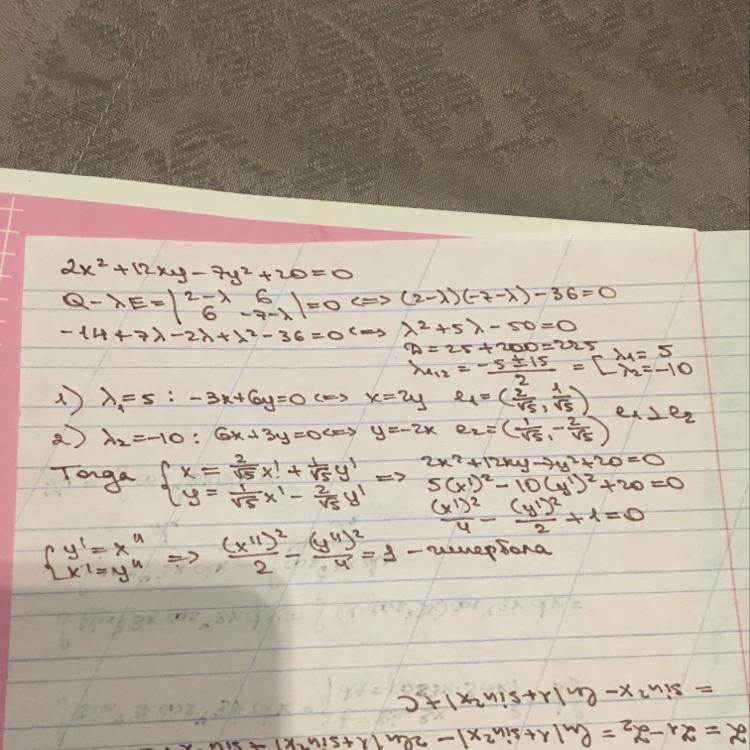 2x² + 12xy - 7y² + 20 = 0
Q - λE = |2-λ 6; 6 -7-λ| = 0 <=> (2-λ)(-7-λ) - 36 = 0
-14 + 7λ - 2λ + λ² - 36 = 0 <=> λ² + 5λ - 50 = 0
D = 25 + 200 = 225
λ1,2 = (-5 ± 15)/2 = [λ1 = 5 λ2 = -10
1) λ1 = 5 : -3x + 6y = 0 <=> x = 2y e1 = (2/√5, 1/√5)
2) λ2 = -10 : 6x + 3y = 0 <=> y = -2x e2 = (1/√5, -2/√5) e1 ⊥ e2
Тогда {x = 2/√5 x' + 1/√5 y' => 2x² + 12xy - 7y² + 20 = 0
y = 1/√5 x' - 2/√5 y' 5(x')² - 10(y')² + 20 = 0
(x')²/4 - (y')²/2 + 1 = 0
{y' = x" x' = y" => (x")²/2 - (y")²/4 = 1 - гипербола
= sin²x - ln(1+sin²x) + C